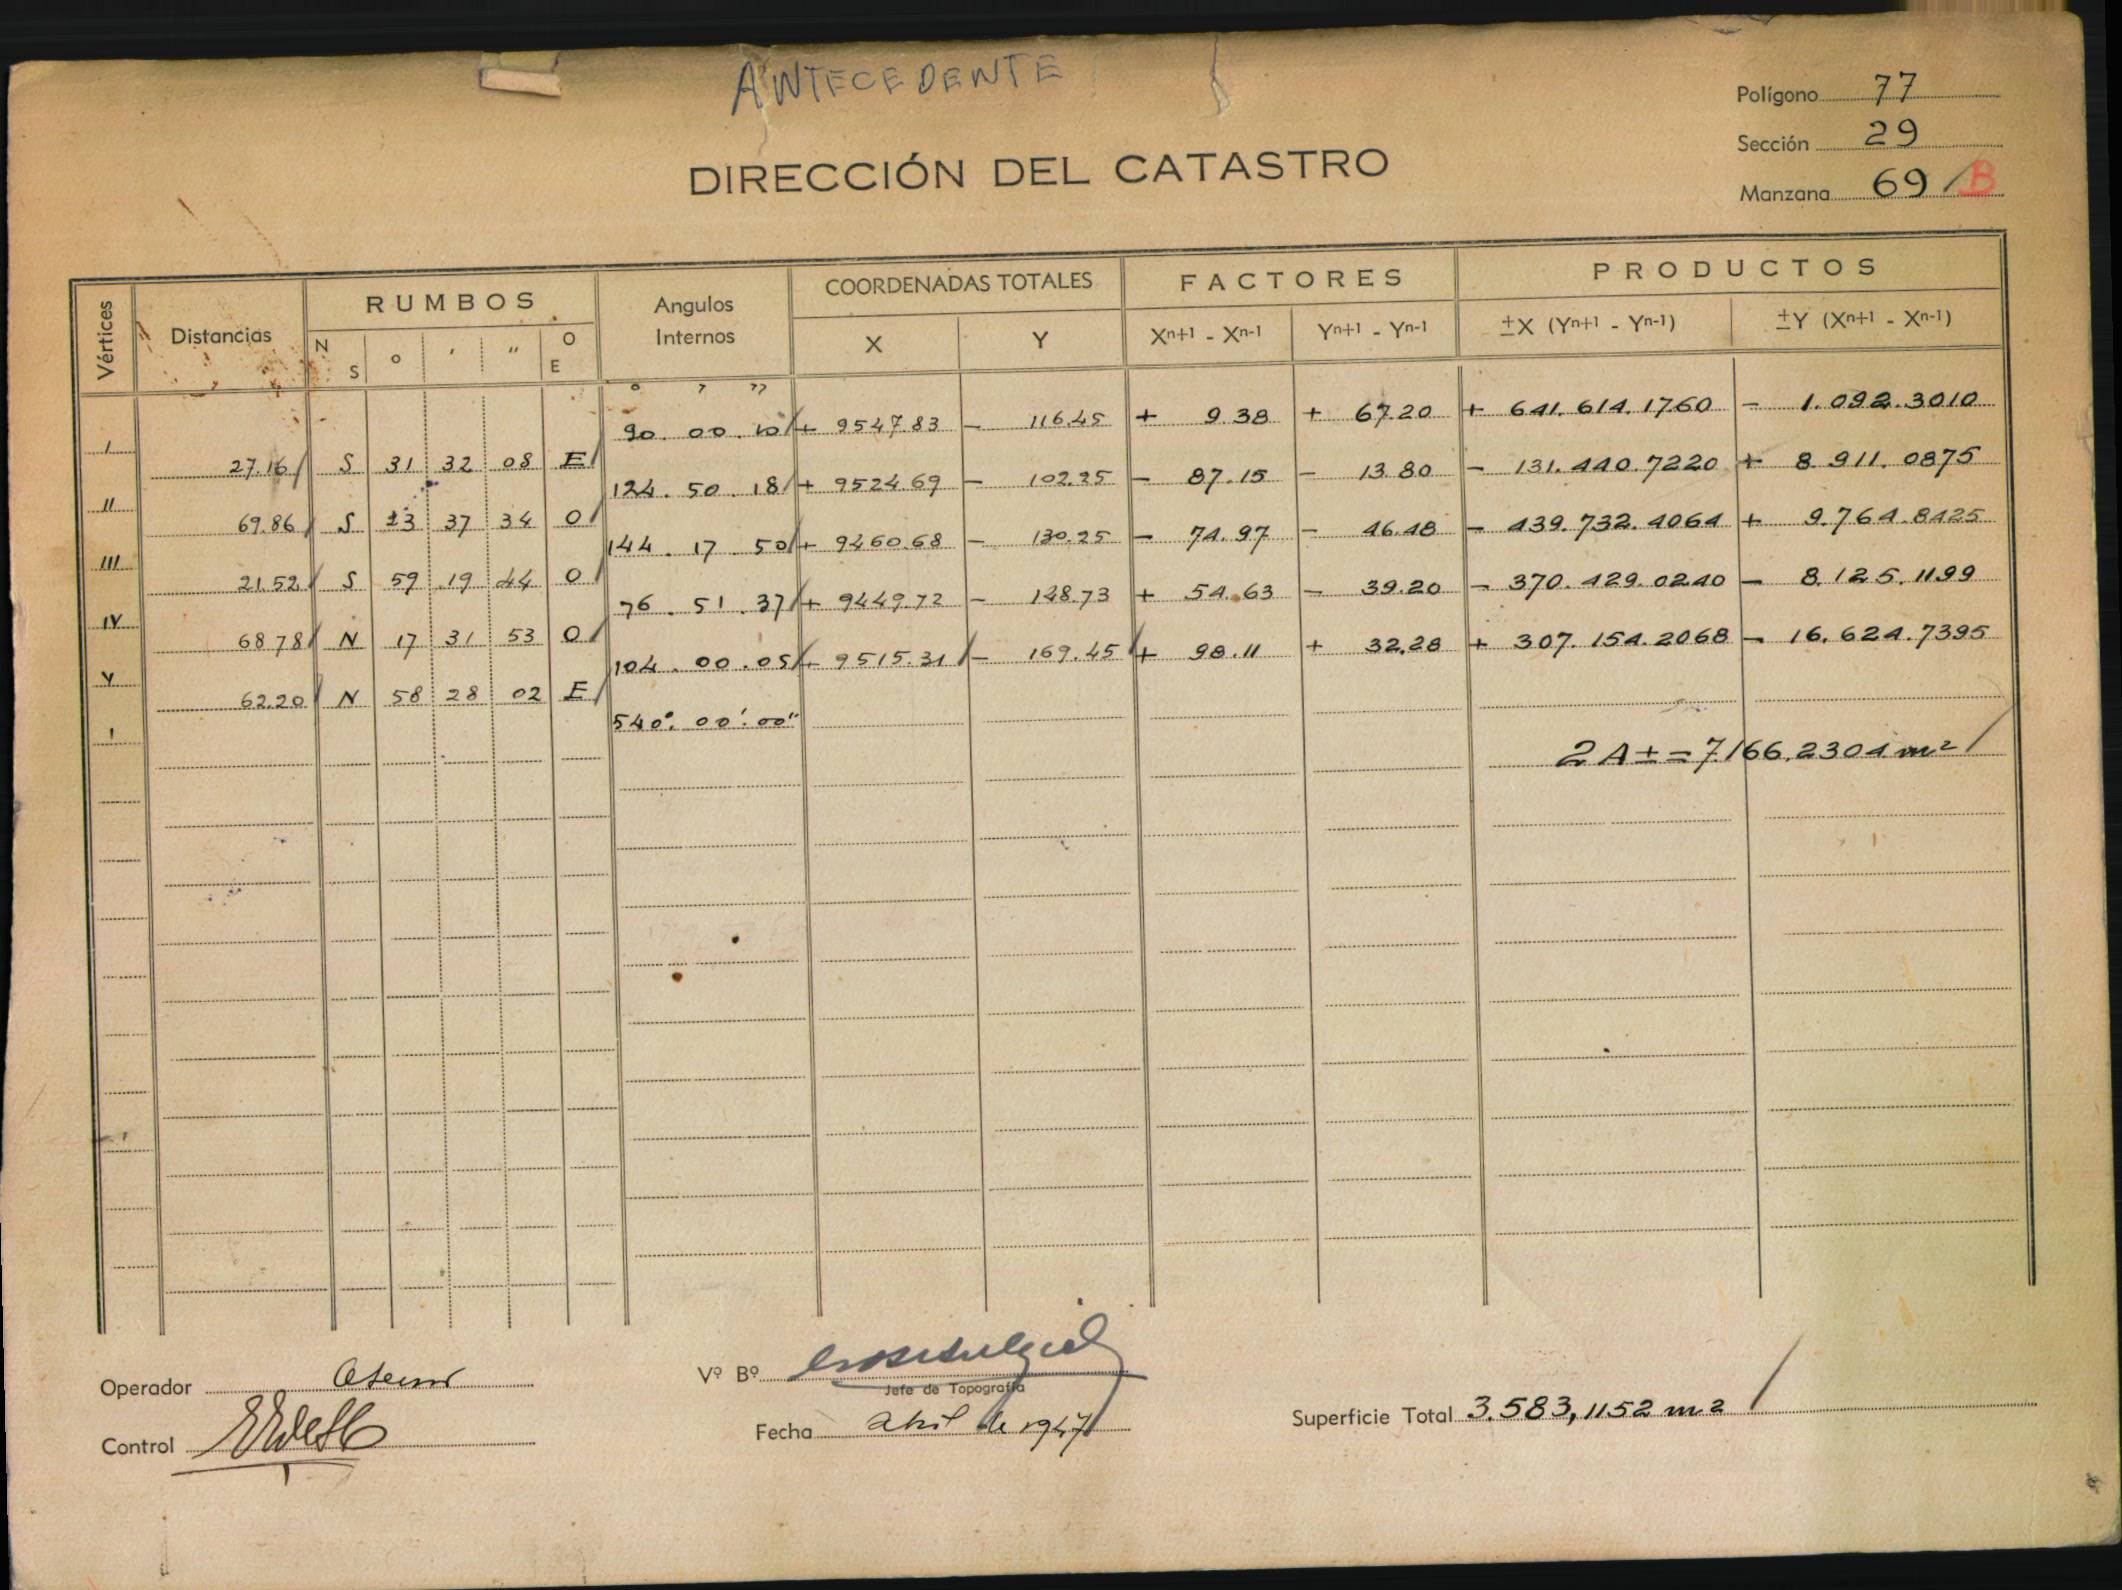 ANTECEDENTE
Polígono 77
Sección 29
Manzana 69 / B
DIRECCIÓN DEL CATASTRO
Vértices Distancias RUMBOS Angulos Internos COORDENADAS TOTALES FACTORES PRODUCTOS
N S ° ' " O E X Y Xn+1 - Xn-1 Yn+1 - Yn-1 ±X (Yn+1 - Yn-1) ±Y (Xn+1 - Xn-1)
° ' "
I 90. 00. 10 + 9547.83 - 116.45 + 9.38 + 67.20 + 641.614.1760 - 1.092.3010
27.16 S 31 32 08 E
II 124. 50. 18 + 9524.69 - 102.25 - 87.15 - 13.80 - 131.440.7220 + 8 911.0875
69.86 S 23 37 34 O
III 144. 17. 50 + 9460.68 - 130.25 - 74.97 - 46.48 - 439.732.4064 + 9.764.8425
21.52 S 59 19 44 O
IV 76. 51. 37 + 9449.72 - 148.73 + 54.63 - 39.20 - 370.429.0240 - 8.125.1199
68.78 N 17 31 53 O
V 104. 00. 05 + 9515.31 - 169.45 + 98.11 + 32.28 + 307.154.2068 - 16.624.7395
62.20 N 58 28 02 E
I 540°. 00'. 00"
2 A ± = 7.166.2304 m²
Operador
Vº Bº
Jefe de Topografía
Control
Fecha abril de 1947
Superficie Total 3.583,1152 m2